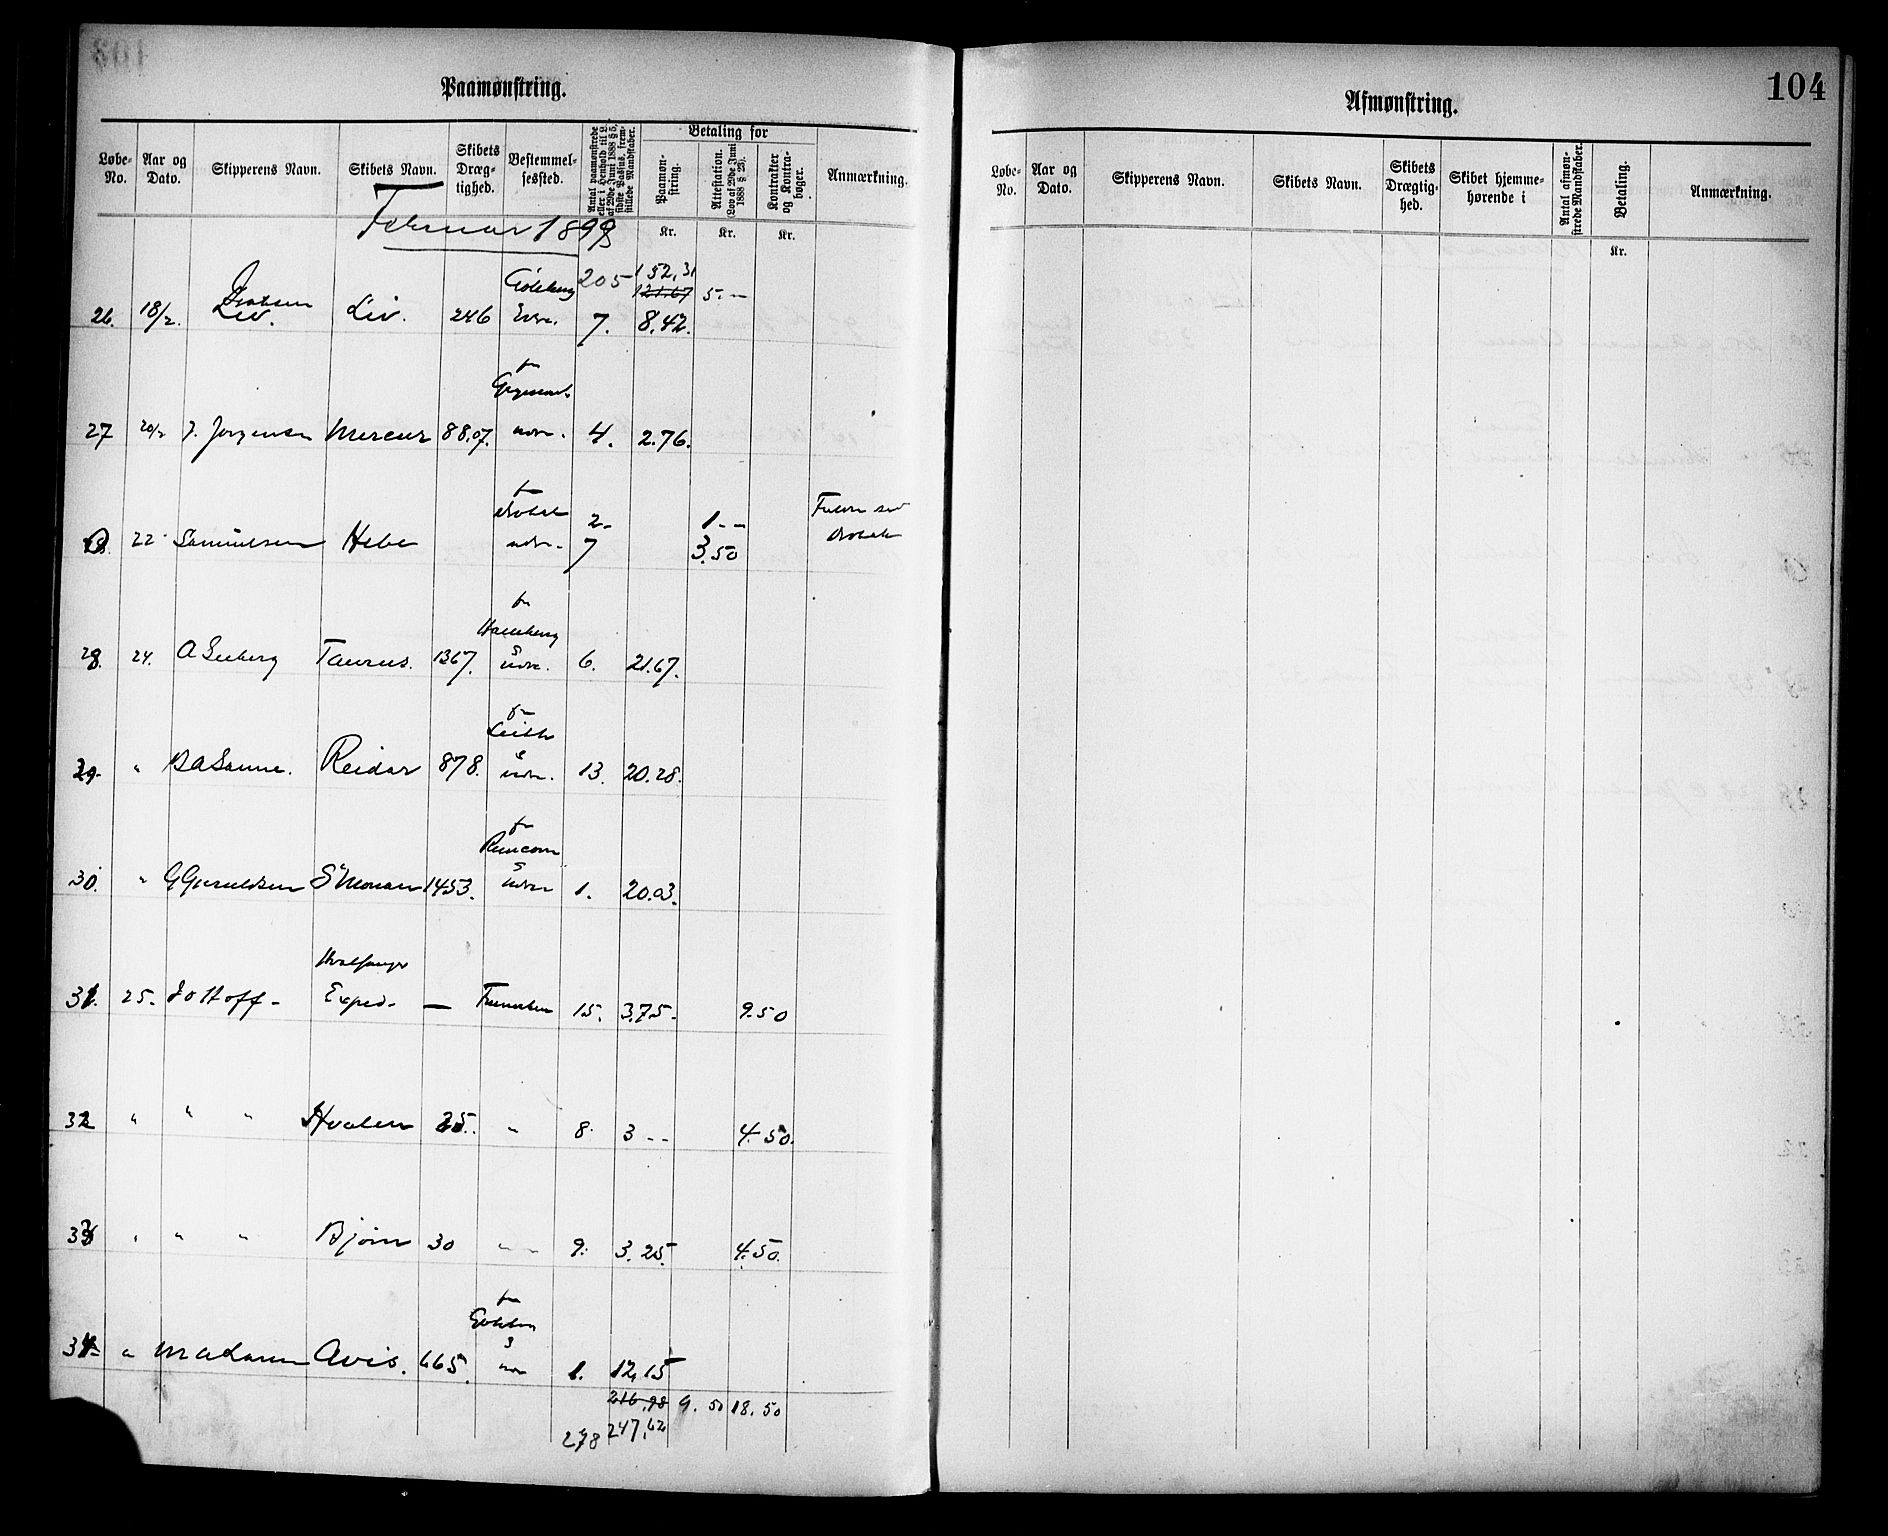 104
Paamønstring.
Løbe-No. Aar og Dato. Skipperens Navn. Skibets Navn. Skibets Dræg-tighed. Bestemmel-sessted. Antal paamønstrede eller i Henhold til L. af 29de Juni 1888 § 5, sidste Passus, frem-stillede Mandskaber. Betaling for Paamøn-string. Attestation. (Lov af 29de Juni 1888 § 23). Kontrakter og Kontra-bøger. Anmærkning.
Februar 1899
Kr. Kr. Kr.
205 152,31
121.67 5.--
26. 18/2. Liv. 246 7. 8.42.
fra
27 20/2 J. Jørgensen Mercur 88,07. udv. 4. 2.76.
fra
2- 1--
22 Samuelsen Hebe udv. 7 3.50
fra
Hamburg
28 24. A Seeberg Taurus. 1367. udv. 6. 21.67.
fra
Leith
29. " B A Sanne. Reidar 878. udv. 13. 20.28.
fra
Runcorn
30. " St Monan 1453. udv. 1. 20.03.
Hvalfanger
31. 25. Exped. — 15. 3.75- 9.50
32 " " " Hvalen 25. " 8. 3 -- 4.50.
33 " " " Bjørn 30 " " 9. 3.25. 4.50.
fra
34 " Avis. 665. 1. 12,15
216,98 9.50 18.50
278 247,62
Afmønstring.
Løbe-No. Aar og Dato. Skipperens Navn. Skibets Navn. Skibets Drægtig-hed. Skibet hjemme-hørende i Antal afmøn-strede Mandskaber. Betaling. Anmærkning.
Kr.